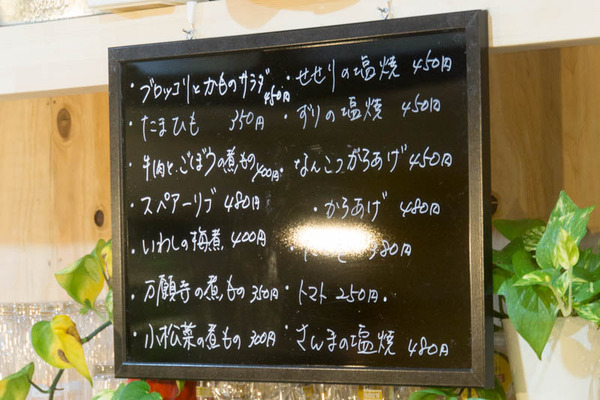 ・ブロッコリとかものサラダ 450円
・たまひも 350円
・牛肉とごぼうの煮もの 400円
・スペアーリブ 480円
・いわしの梅煮 400円
・万願寺の煮もの 350円
・小松菜の煮もの 300円
・せせりの塩焼 450円
・ずりの塩焼 450円
・なんこつからあげ 450円
・からあげ 480円
380円
・トマト 250円
・さんまの塩焼 480円